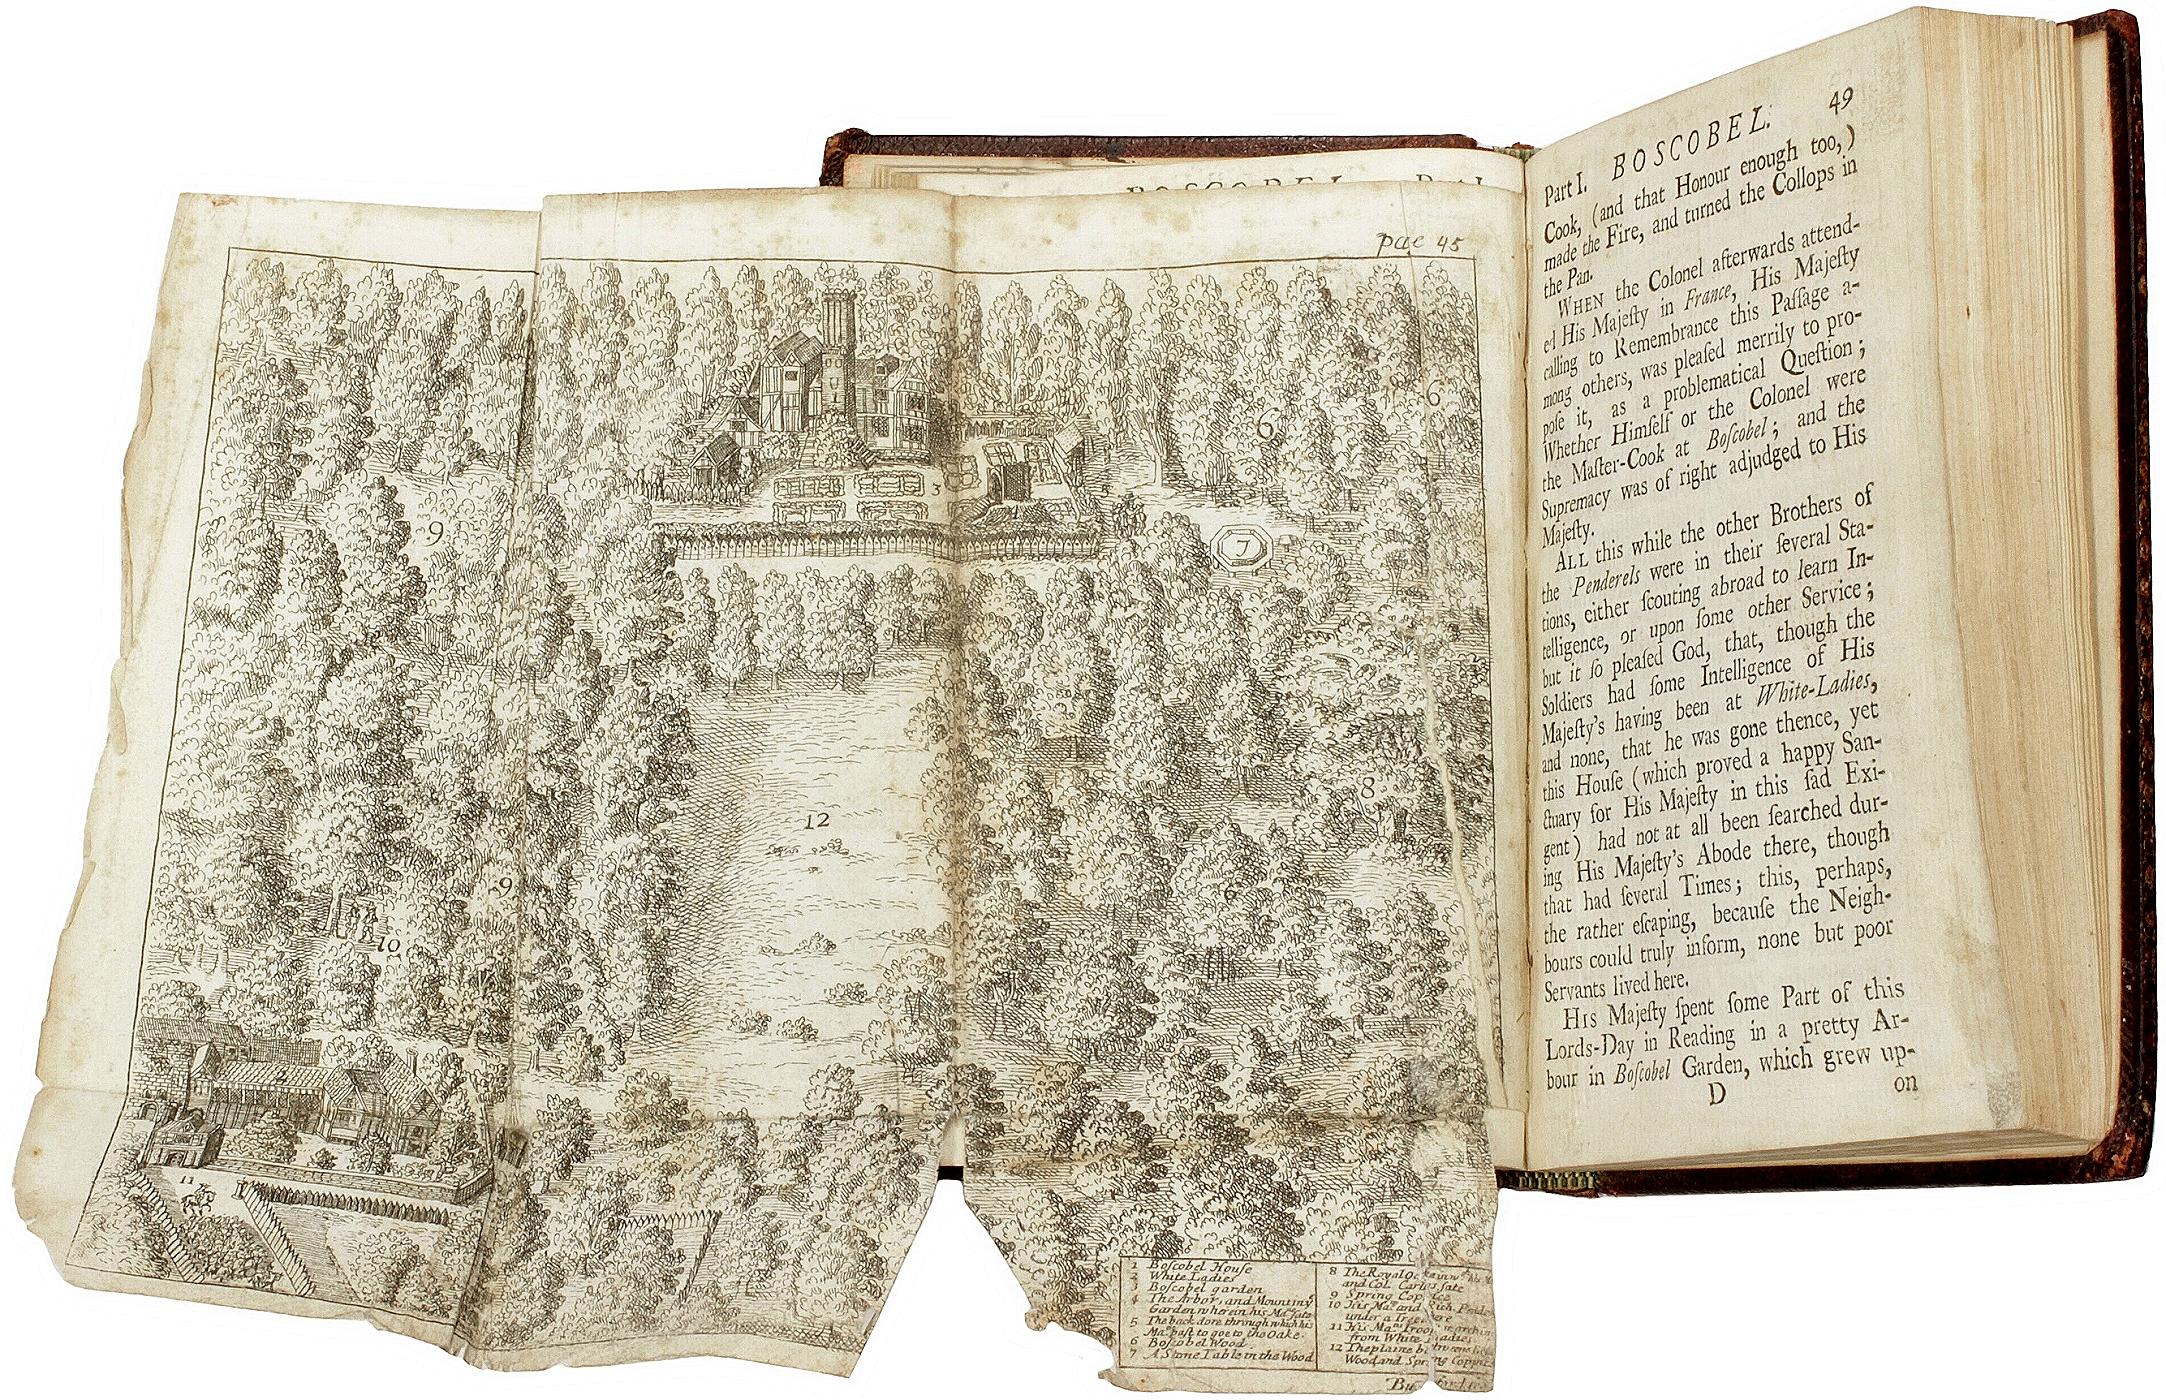 BOSCOBEL.
pae 45
6
6
3
7
9
12
8
9
6
10
11
1 Boſcobel Houſe
2 White Ladies
3 Boſcobel garden
4 The Arbor, and Mount in yͤ
Garden wherein his Maᵗⁱᵉ ſate
5 The back dore through which his
Maᵗⁱᵉ paſt to goe to the Oake.
6 Boſcobel Wood
7 A Stone Table in the Wood
8 The Royal
and Col. Carlos ſate
9 Spring Coppice
10 His Maᵗⁱᵉ and Rich.
under a Tree
11 His Maᵗⁱᵉˢ Troop
from White Ladies
12 The plaine
Wood and Spring Coppice
Part I. BOSCOBEL. 49
Cook, (and that Honour enough too,)
made the Fire, and turned the Collops in
the Pan.
WHEN the Colonel afterwards attend-
ed His Majeſty in France, His Majeſty
calling to Remembrance this Paſſage a-
mong others, was pleaſed merrily to pro-
poſe it, as a problematical Queſtion;
Whether Himſelf or the Colonel were
the Maſter-Cook at Boſcobel; and the
Supremacy was of right adjudged to His
Majeſty.
ALL this while the other Brothers of
the Penderels were in their ſeveral Sta-
tions, either ſcouting abroad to learn In-
telligence, or upon ſome other Service;
but it ſo pleaſed God, that, though the
Soldiers had ſome Intelligence of His
Majeſty's having been at White-Ladies,
and none, that he was gone thence, yet
this Houſe (which proved a happy San-
ctuary for His Majeſty in this ſad Exi-
gent) had not at all been ſearched dur-
ing His Majeſty's Abode there, though
that had ſeveral Times; this, perhaps,
the rather eſcaping, becauſe the Neigh-
bours could truly inform, none but poor
Servants lived here.
HIS Majeſty ſpent ſome Part of this
Lords-Day in Reading in a pretty Ar-
bour in Boſcobel Garden, which grew up-
D on